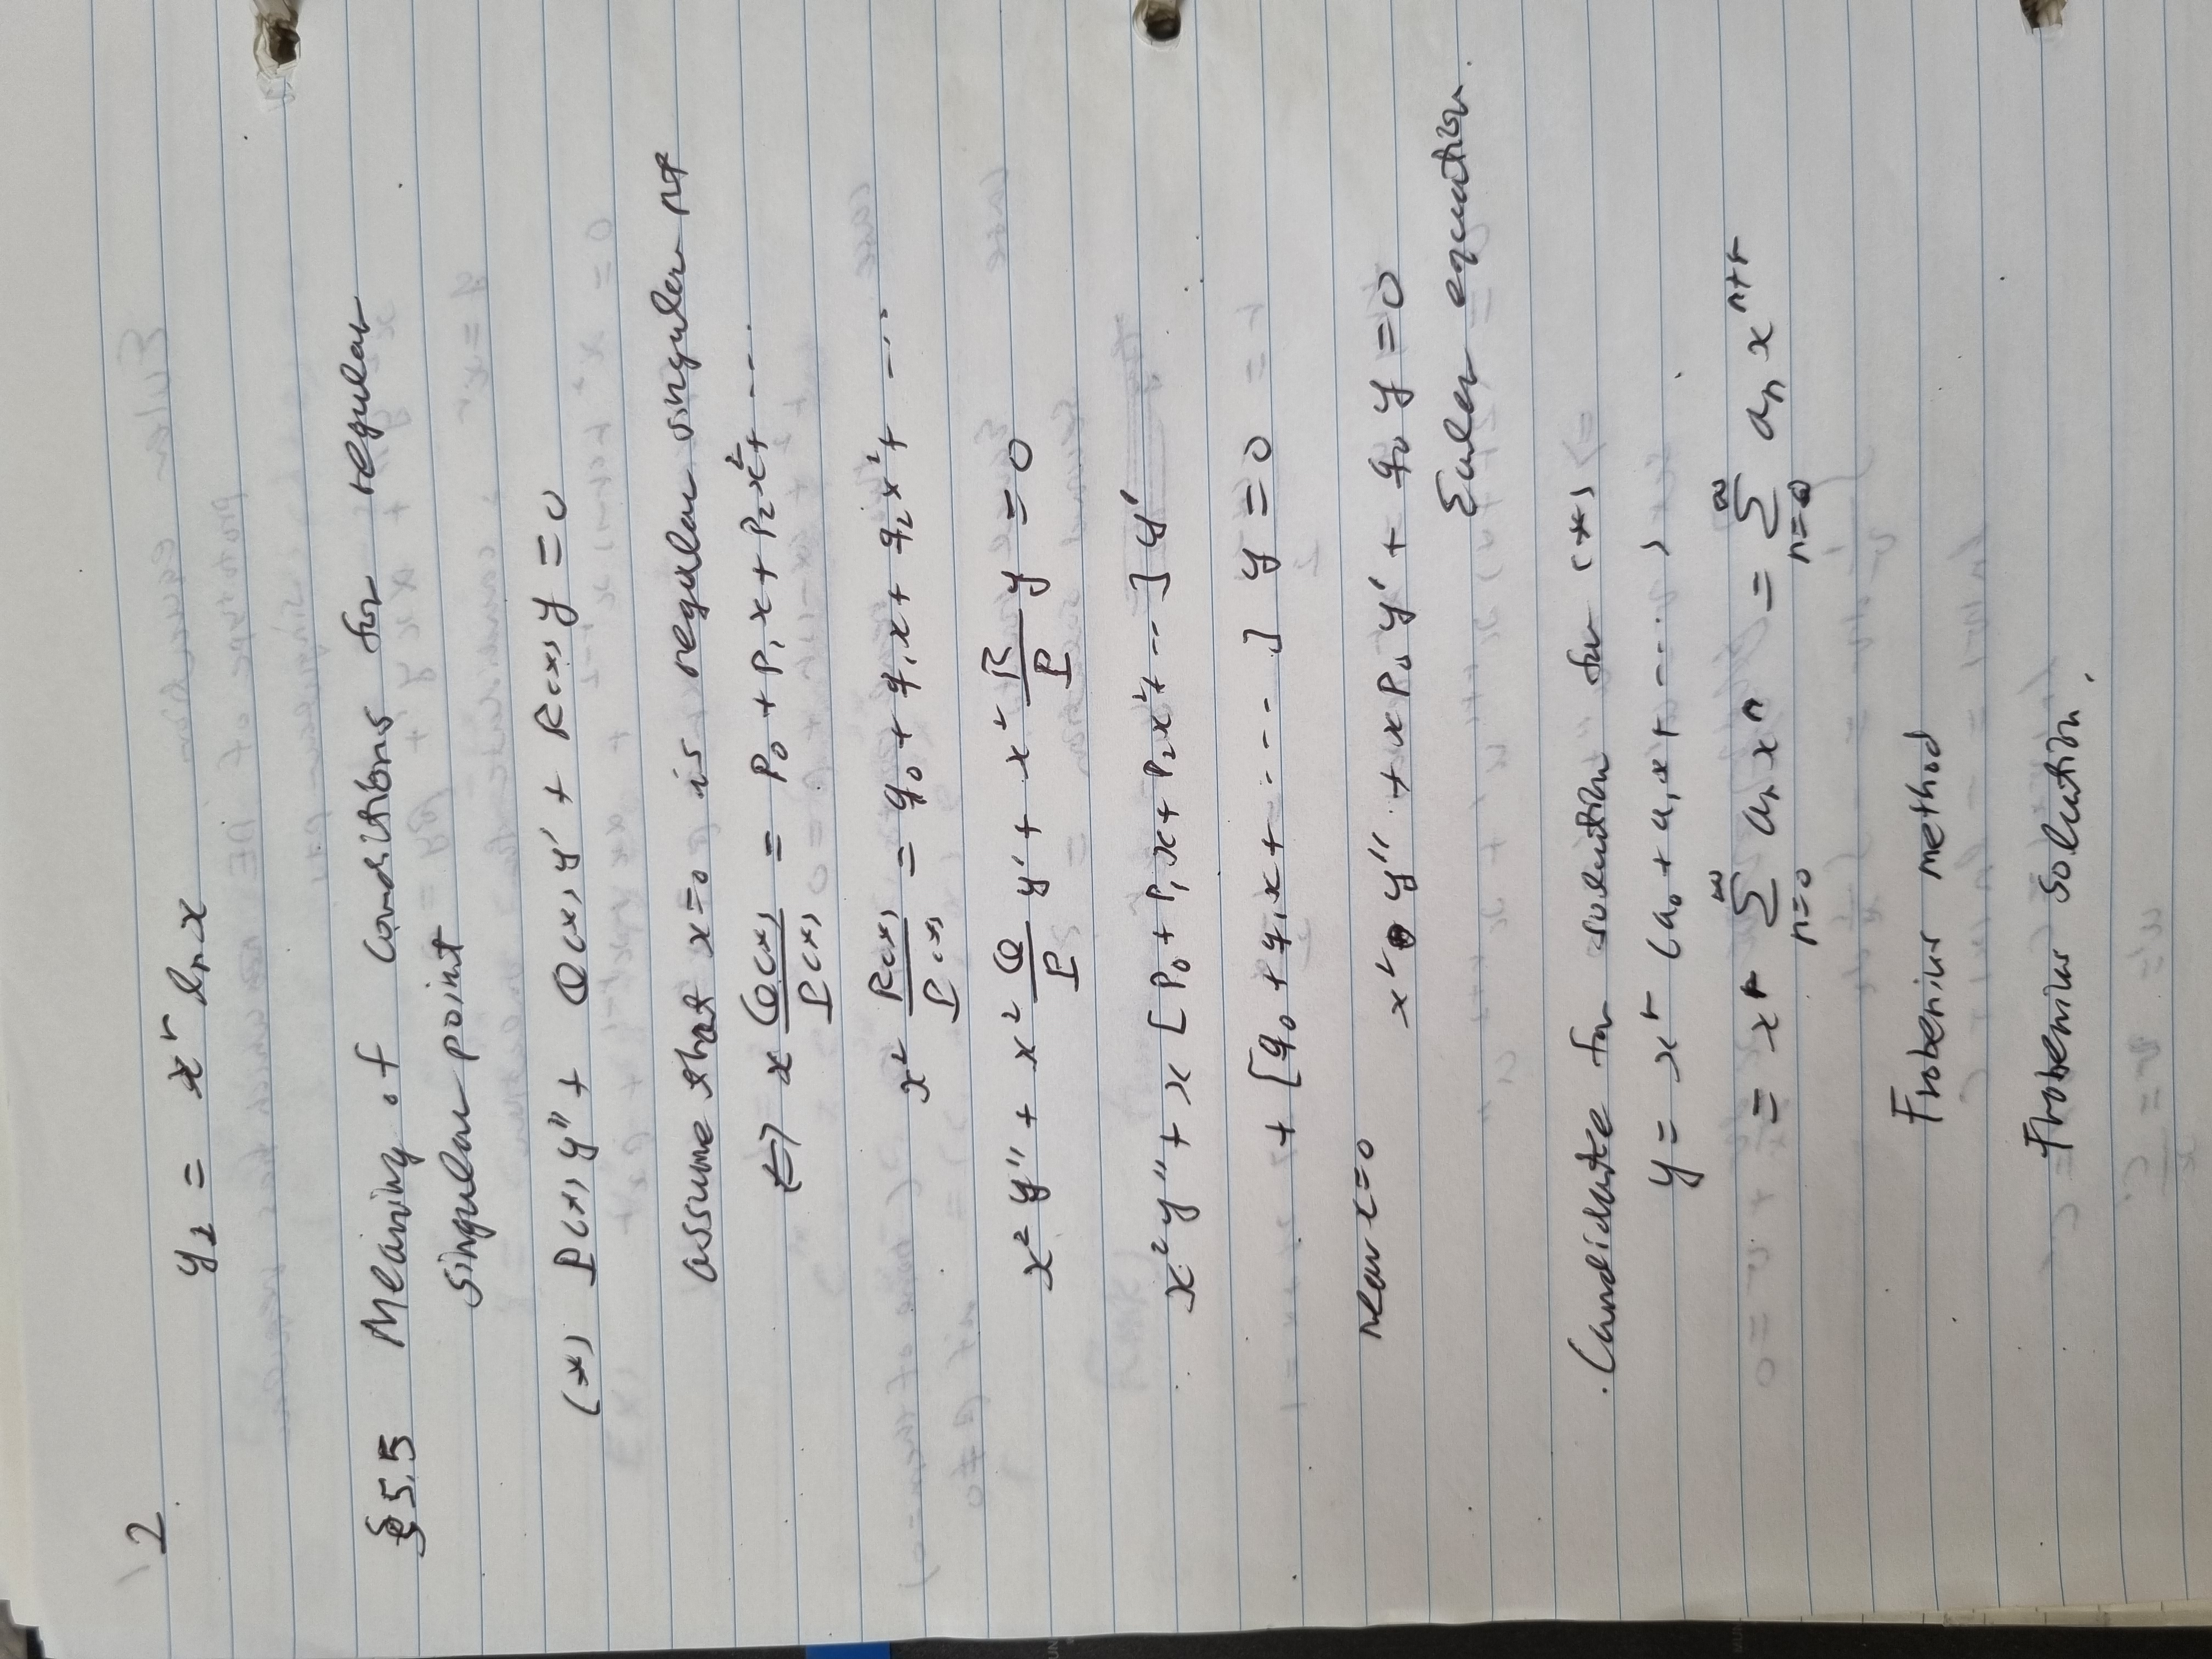 2
y₂ = xʳ ln x
§5.5 Meaning of conditions for regular
singular point
(*) P(x) y'' + Q(x) y' + R(x) y = 0
assume that x=0 is regular singular pt
⇔ x Q(x)/P(x) = p₀ + p₁x + p₂x² + ----
x² R(x)/P(x) = q₀ + q₁x + q₂x² + ---
x² y'' + x² Q/P y' + x² R/P y = 0
x² y'' + x [p₀ + p₁x + p₂x² + --] y'
+ [q₀ + q₁x + ----] y = 0
near x=0
x² y'' + x p₀ y' + q₀ y = 0
Euler equation.
Candidate for solution for (*)
y = xʳ (a₀ + a₁x + ----)
= xʳ ∑_{n=0}^{∞} aₙ xⁿ = ∑_{n=0}^{∞} aₙ xⁿ⁺ʳ
Frobenius method
Frobenius solution.